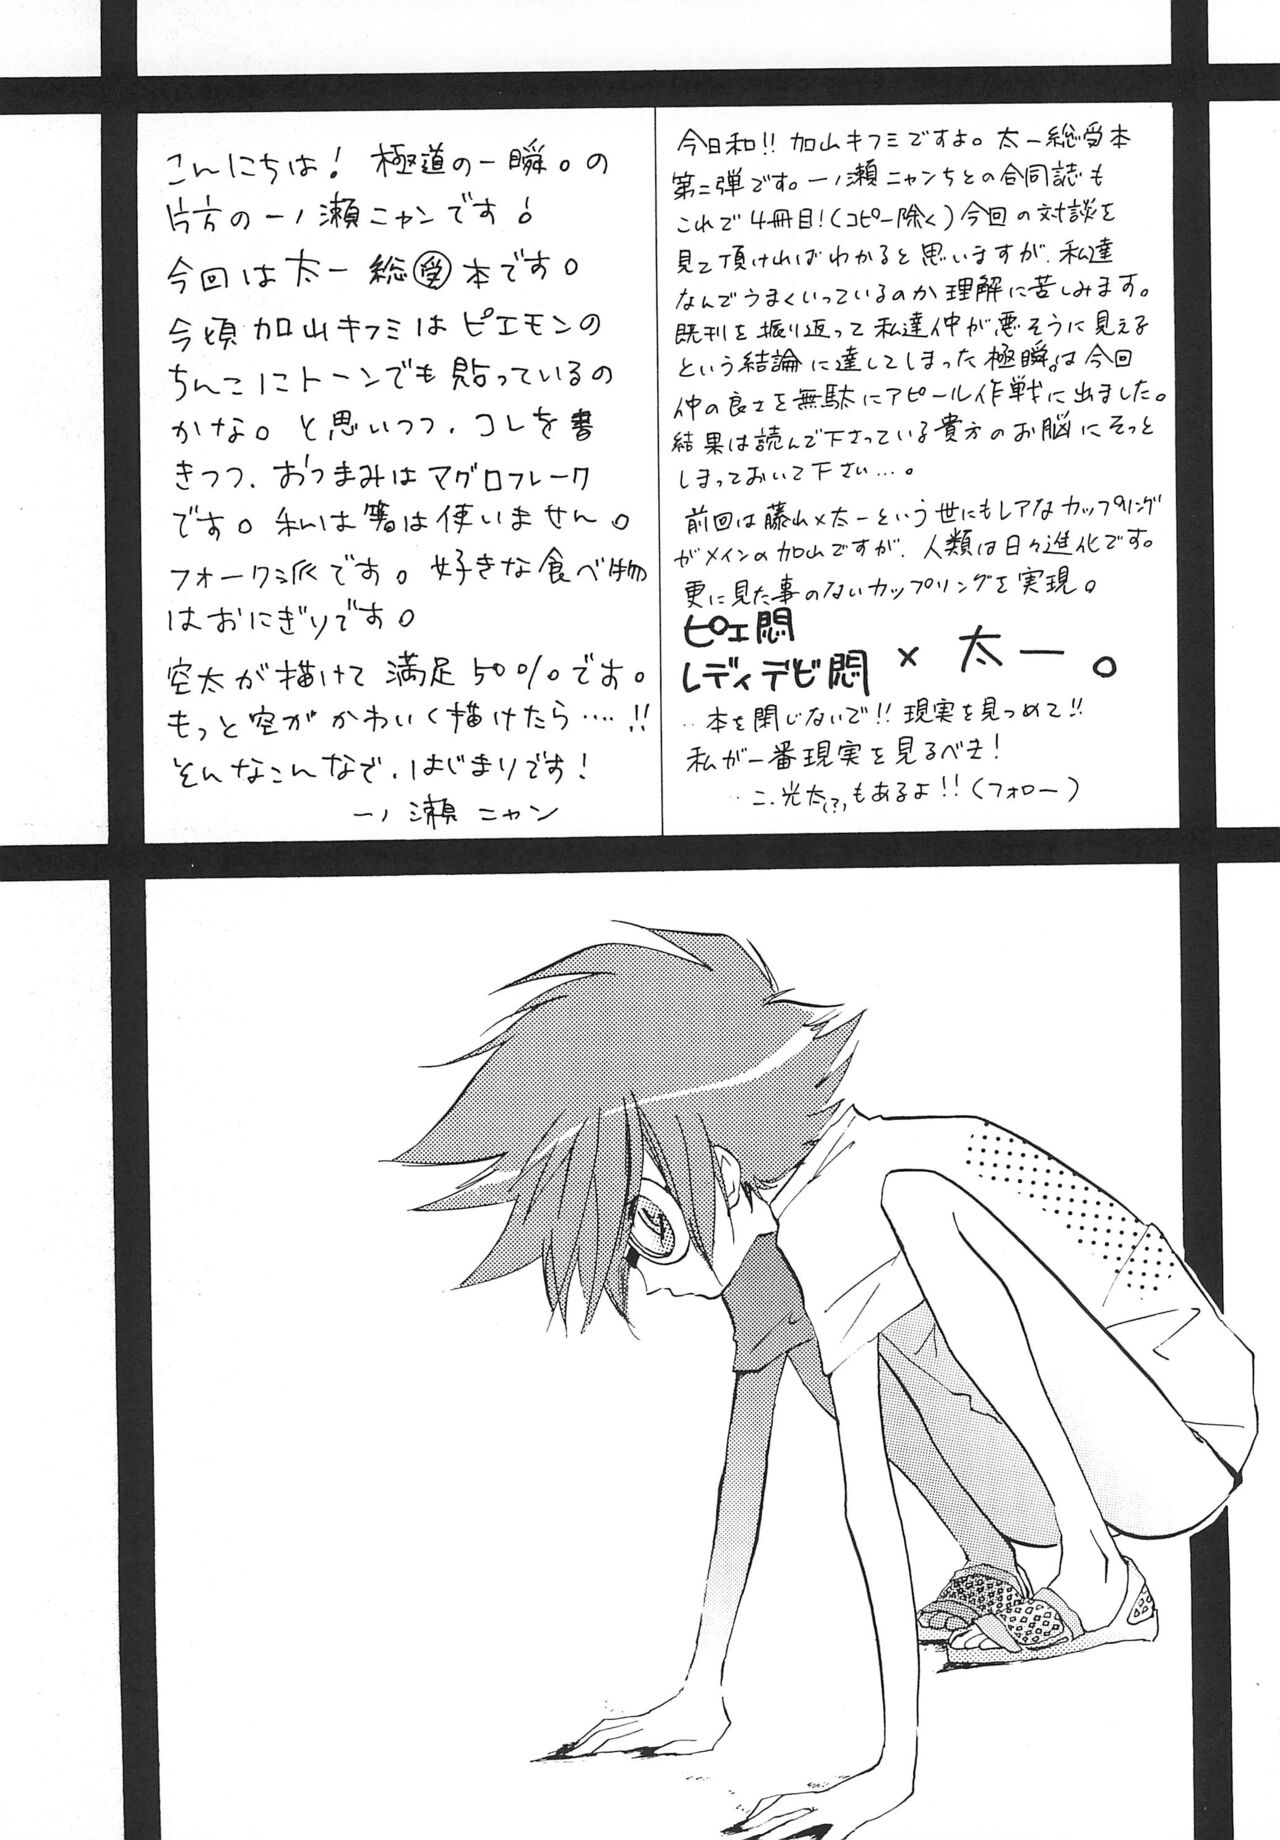 こんにちは！極道の一瞬。の
片方の一ノ瀬ニャンです！
今回は太一総受本です。
今頃加山キフミはピエモンの
ちんこにトーンでも貼っているの
かな。と思いつつ、コレを書
きつつ、おつまみはマグロフレーク
です。私は箸は使いません。
フォーク派です。好きな食べ物
はおにぎりです。
空太が描けて満足50％です。
もっと空がかわいく描けたら…‥!!
そんなこんなで、はじまりです！
一ノ瀬ニャン
今日和!!加山キフミですよ。太一総受本
第二弾です。一ノ瀬ニャンちとの合同誌も
これで4冊目！（コピー除く）今回の対談を
見て頂ければわかると思いますが、私達
なんでうまくいっているのか理解に苦しみます。
既刊を振り返って私達仲が悪そうに見える
という結論に達してしまった極瞬。は今回
仲の良さを無駄にアピール作戦に出ました。
結果は読んで下さっている貴方のお脳にそっと
しまっておいて下さい…。
前回は藤山×太一という世にもレアなカップリング
がメインの加山ですが、人類は日々進化です。
更に見た事のないカップリングを実現。
ピエ悶
レディデビ悶 × 太一。
‥本を閉じないで!!現実を見つめて!!
私が一番現実を見るべき！
‥こ、光太(?)もあるよ!!（フォロー）